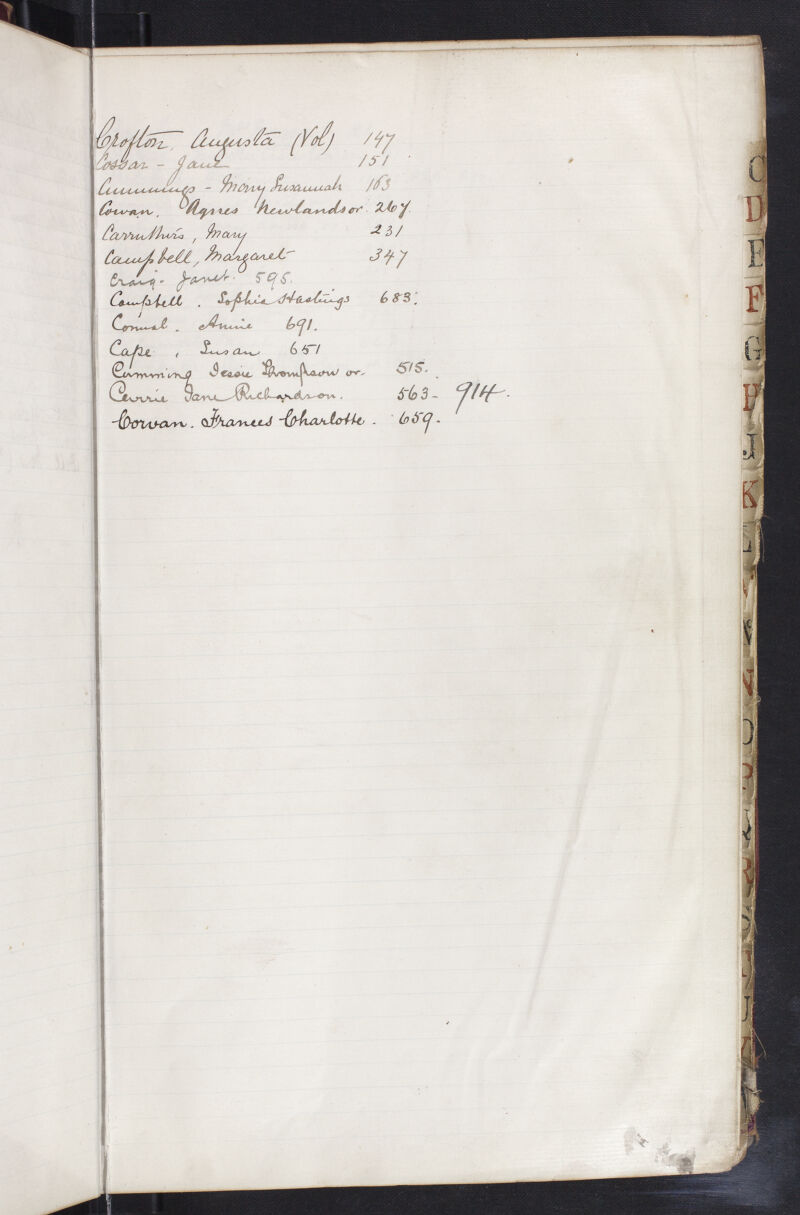 Crofton, Augusta (Vol) 147
Cossar - Jane 151
Cummings - Mary Susannah 163
Cowan. Agnes Newlands or 267.
Carruthers, Mary 231
Campbell, Margaret 347
Craig - Janet. 595.
Campbell. Sophia Hastings 683.
Annie 691.
Cape, Susan 651
Cumming Jessie Thompson or 515.
Currie Jane Richardson. 563 - 914.
Cowan. Frances Charlotte. 659.
C
D
E
F
G
H
J
K
L
N
O
P
R
S